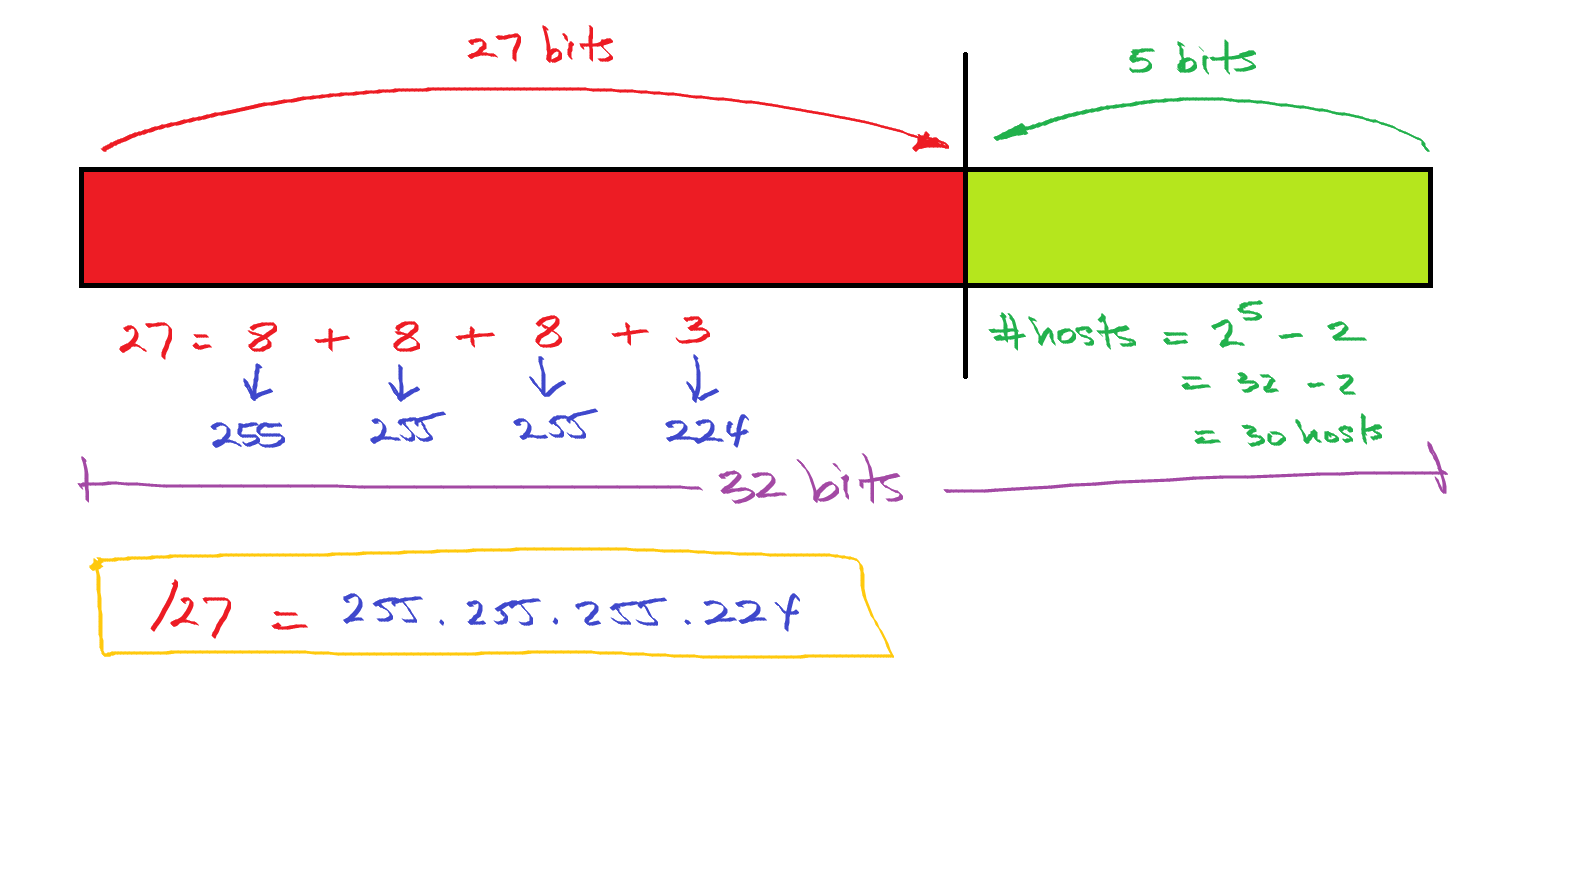 27 bits
5 bits
27 = 8 + 8 + 8 + 3
255 255 255 224
#hosts = 2⁵ - 2
= 32 - 2
= 30 hosts
32 bits
/27 = 255.255.255.224